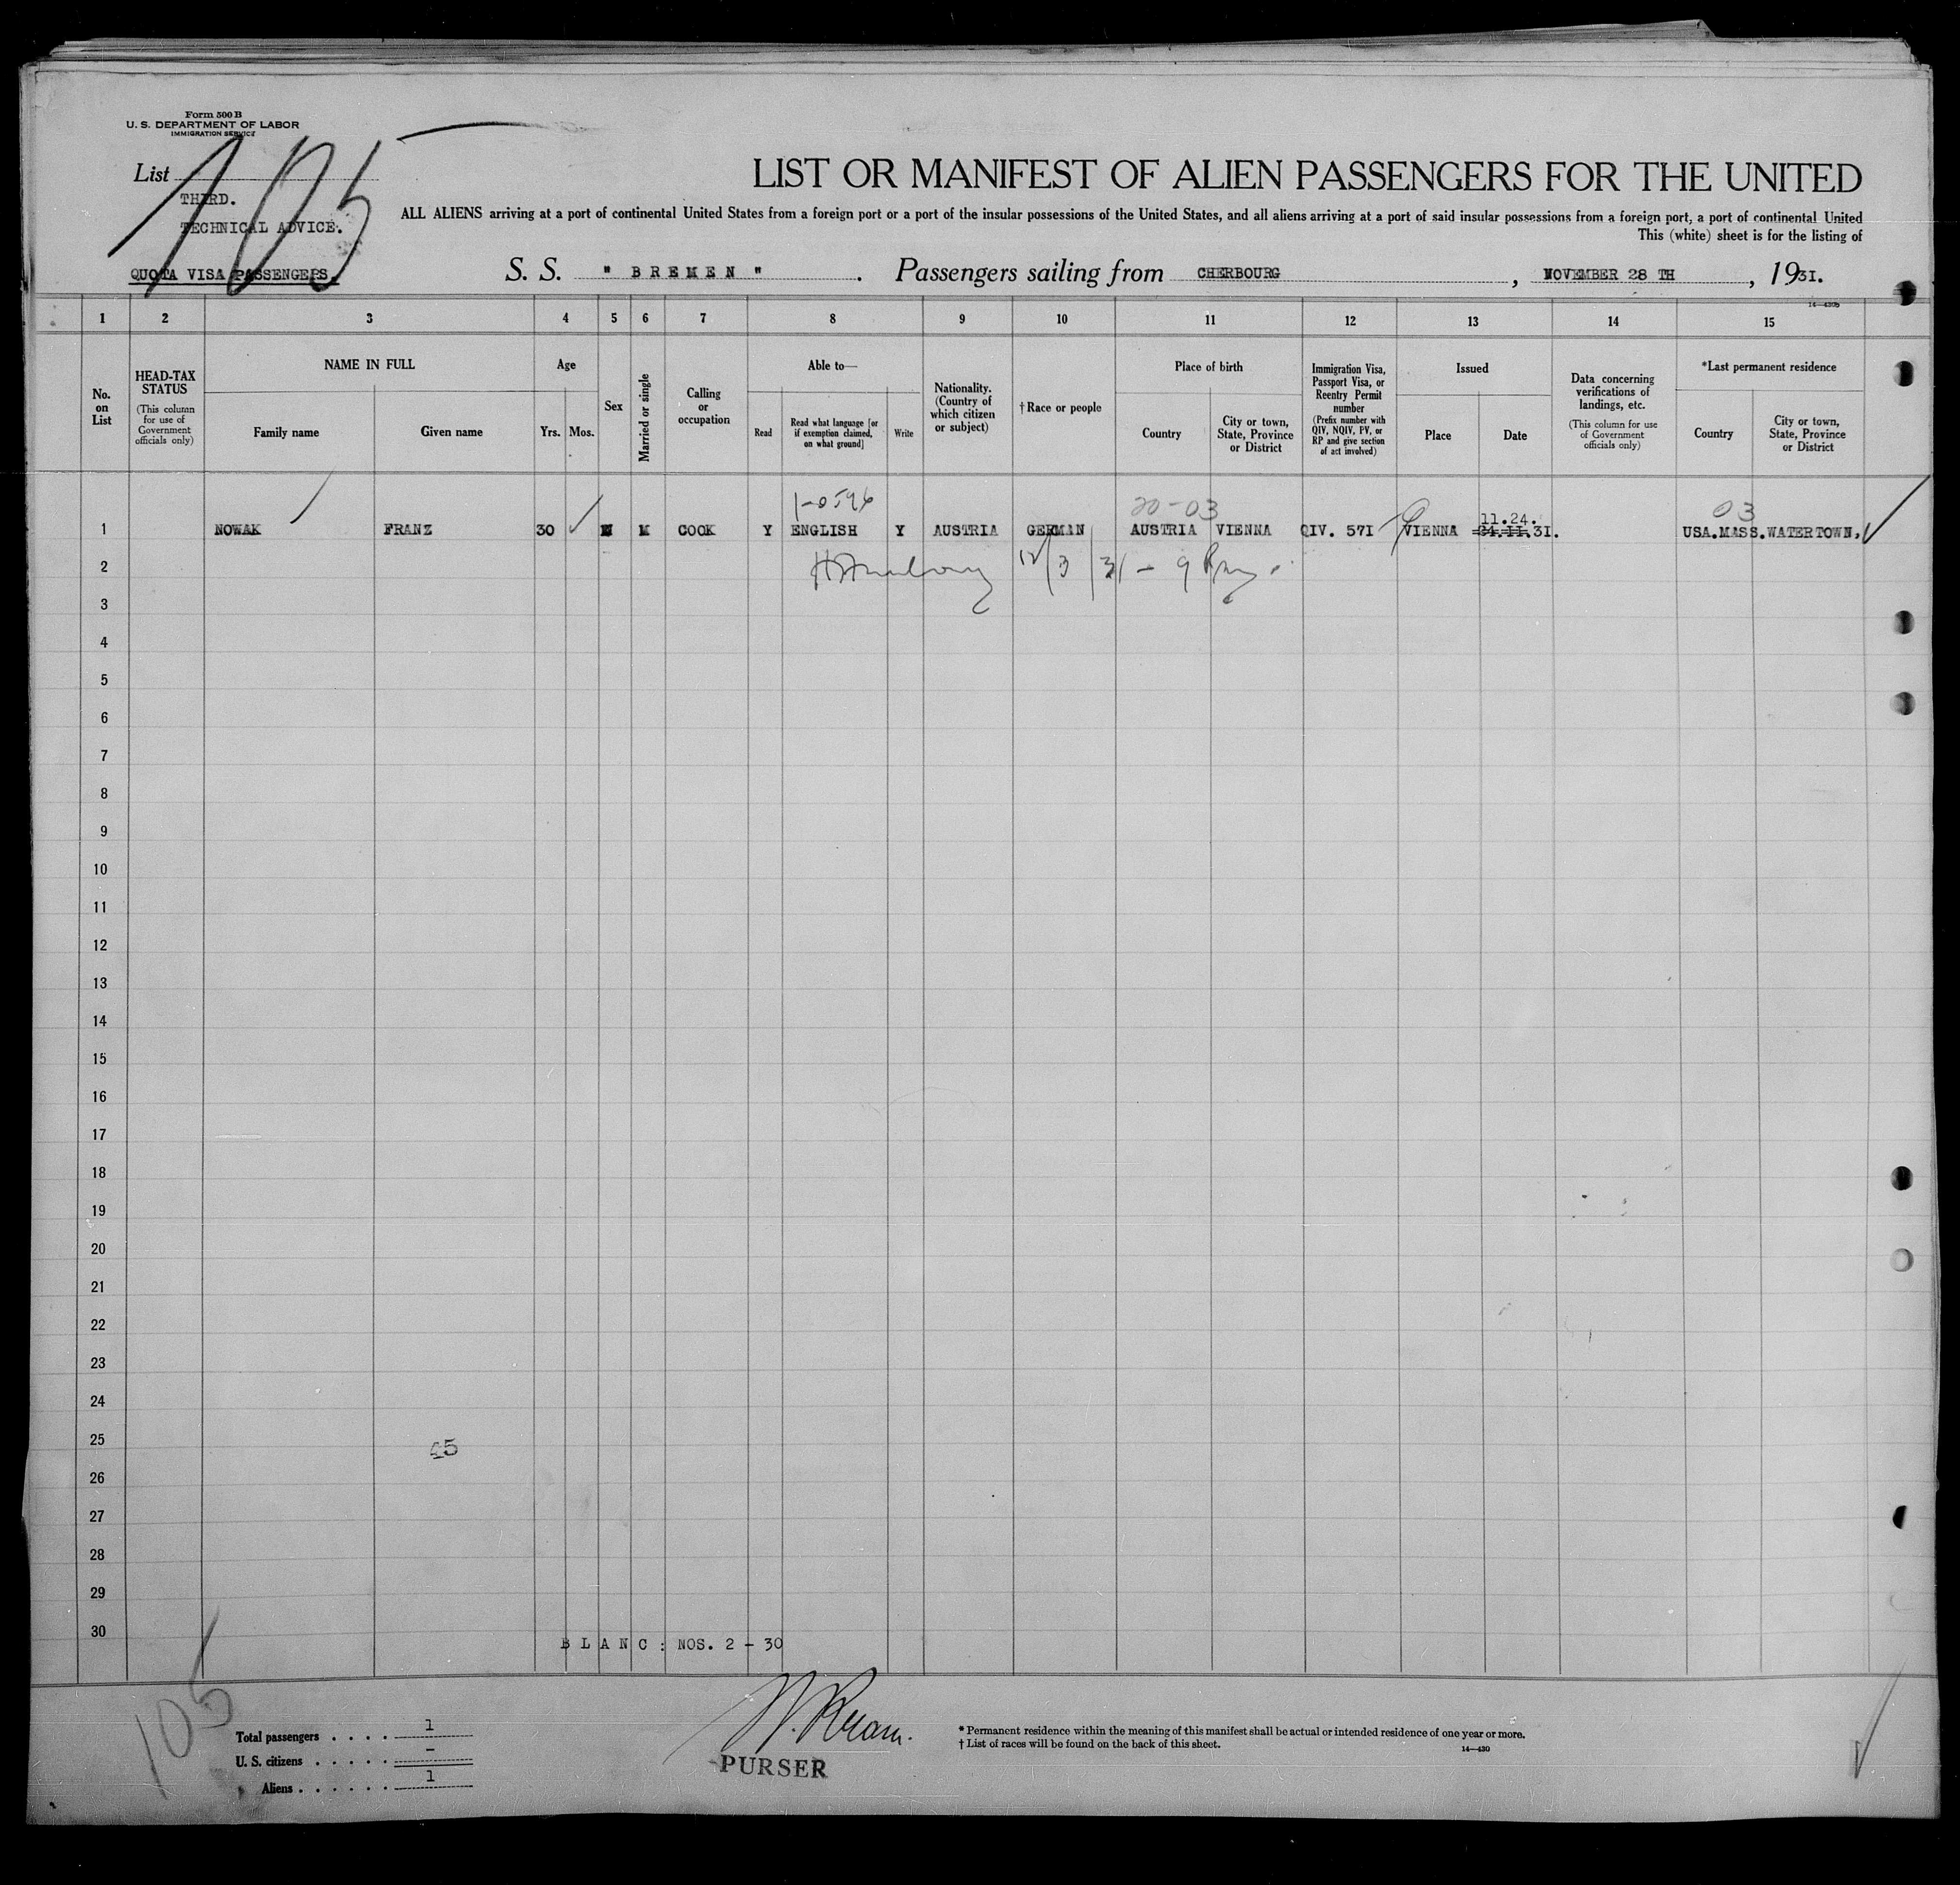 Form 500 B
U. S. DEPARTMENT OF LABOR
IMMIGRATION SERVICE
List 105
THIRD.
TECHNICAL ADVICE.
QUOTA VISA PASSENGERS.
LIST OR MANIFEST OF ALIEN PASSENGERS FOR THE UNITED
ALL ALIENS arriving at a port of continental United States from a foreign port or a port of the insular possessions of the United States, and all aliens arriving at a port of said insular possessions from a foreign port, a port of continental United
This (white) sheet is for the listing of
S. S. " BREMEN ". Passengers sailing from CHERBOURG, NOVEMBER 28 TH, 1931.
14—430b
1 2 3 4 5 6 7 8 9 10 11 12 13 14 15
No. on List
HEAD-TAX STATUS (This column for use of Government officials only)
NAME IN FULL
Family name
Given name
Age
Yrs. Mos.
Sex
Married or single
Calling or occupation
Able to—
Read
Read what language [or if exemption claimed, on what ground]
Write
Nationality. (Country of which citizen or subject)
†Race or people
Place of birth
Country
City or town, State, Province or District
Immigration Visa, Passport Visa, or Reentry Permit number (Prefix number with QIV, NQIV, PV, or RP and give section of act involved)
Issued
Place
Date
Data concerning verifications of landings, etc. (This column for use of Government officials only)
*Last permanent residence
Country
City or town, State, Province or District
1-0596
20-03
11.24.
03
1 NOWAK FRANZ 30 M COOK Y ENGLISH Y AUSTRIA GERMAN AUSTRIA VIENNA QIV. 571 VIENNA 24.11.31. USA.MASS.WATERTOWN,
2 12/3/31 –
3
4
5
6
7
8
9
10
11
12
13
14
15
16
17
18
19
20
21
22
23
24
25
45
26
27
28
29
30
BLANC: NOS. 2 - 30
105
Total passengers . . . . 1
U. S. citizens . . . . . –
Aliens . . . . . . 1
PURSER
* Permanent residence within the meaning of this manifest shall be actual or intended residence of one year or more.
† List of races will be found on the back of this sheet.
14—430